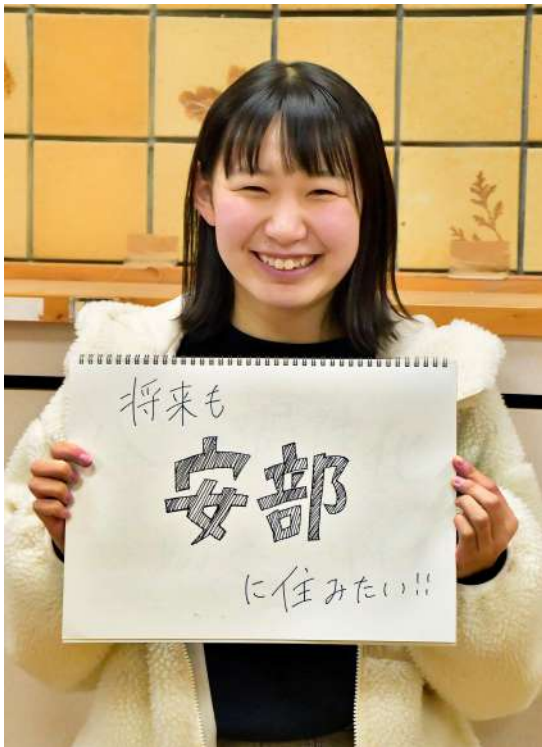 将来も
安部
に住みたい!!